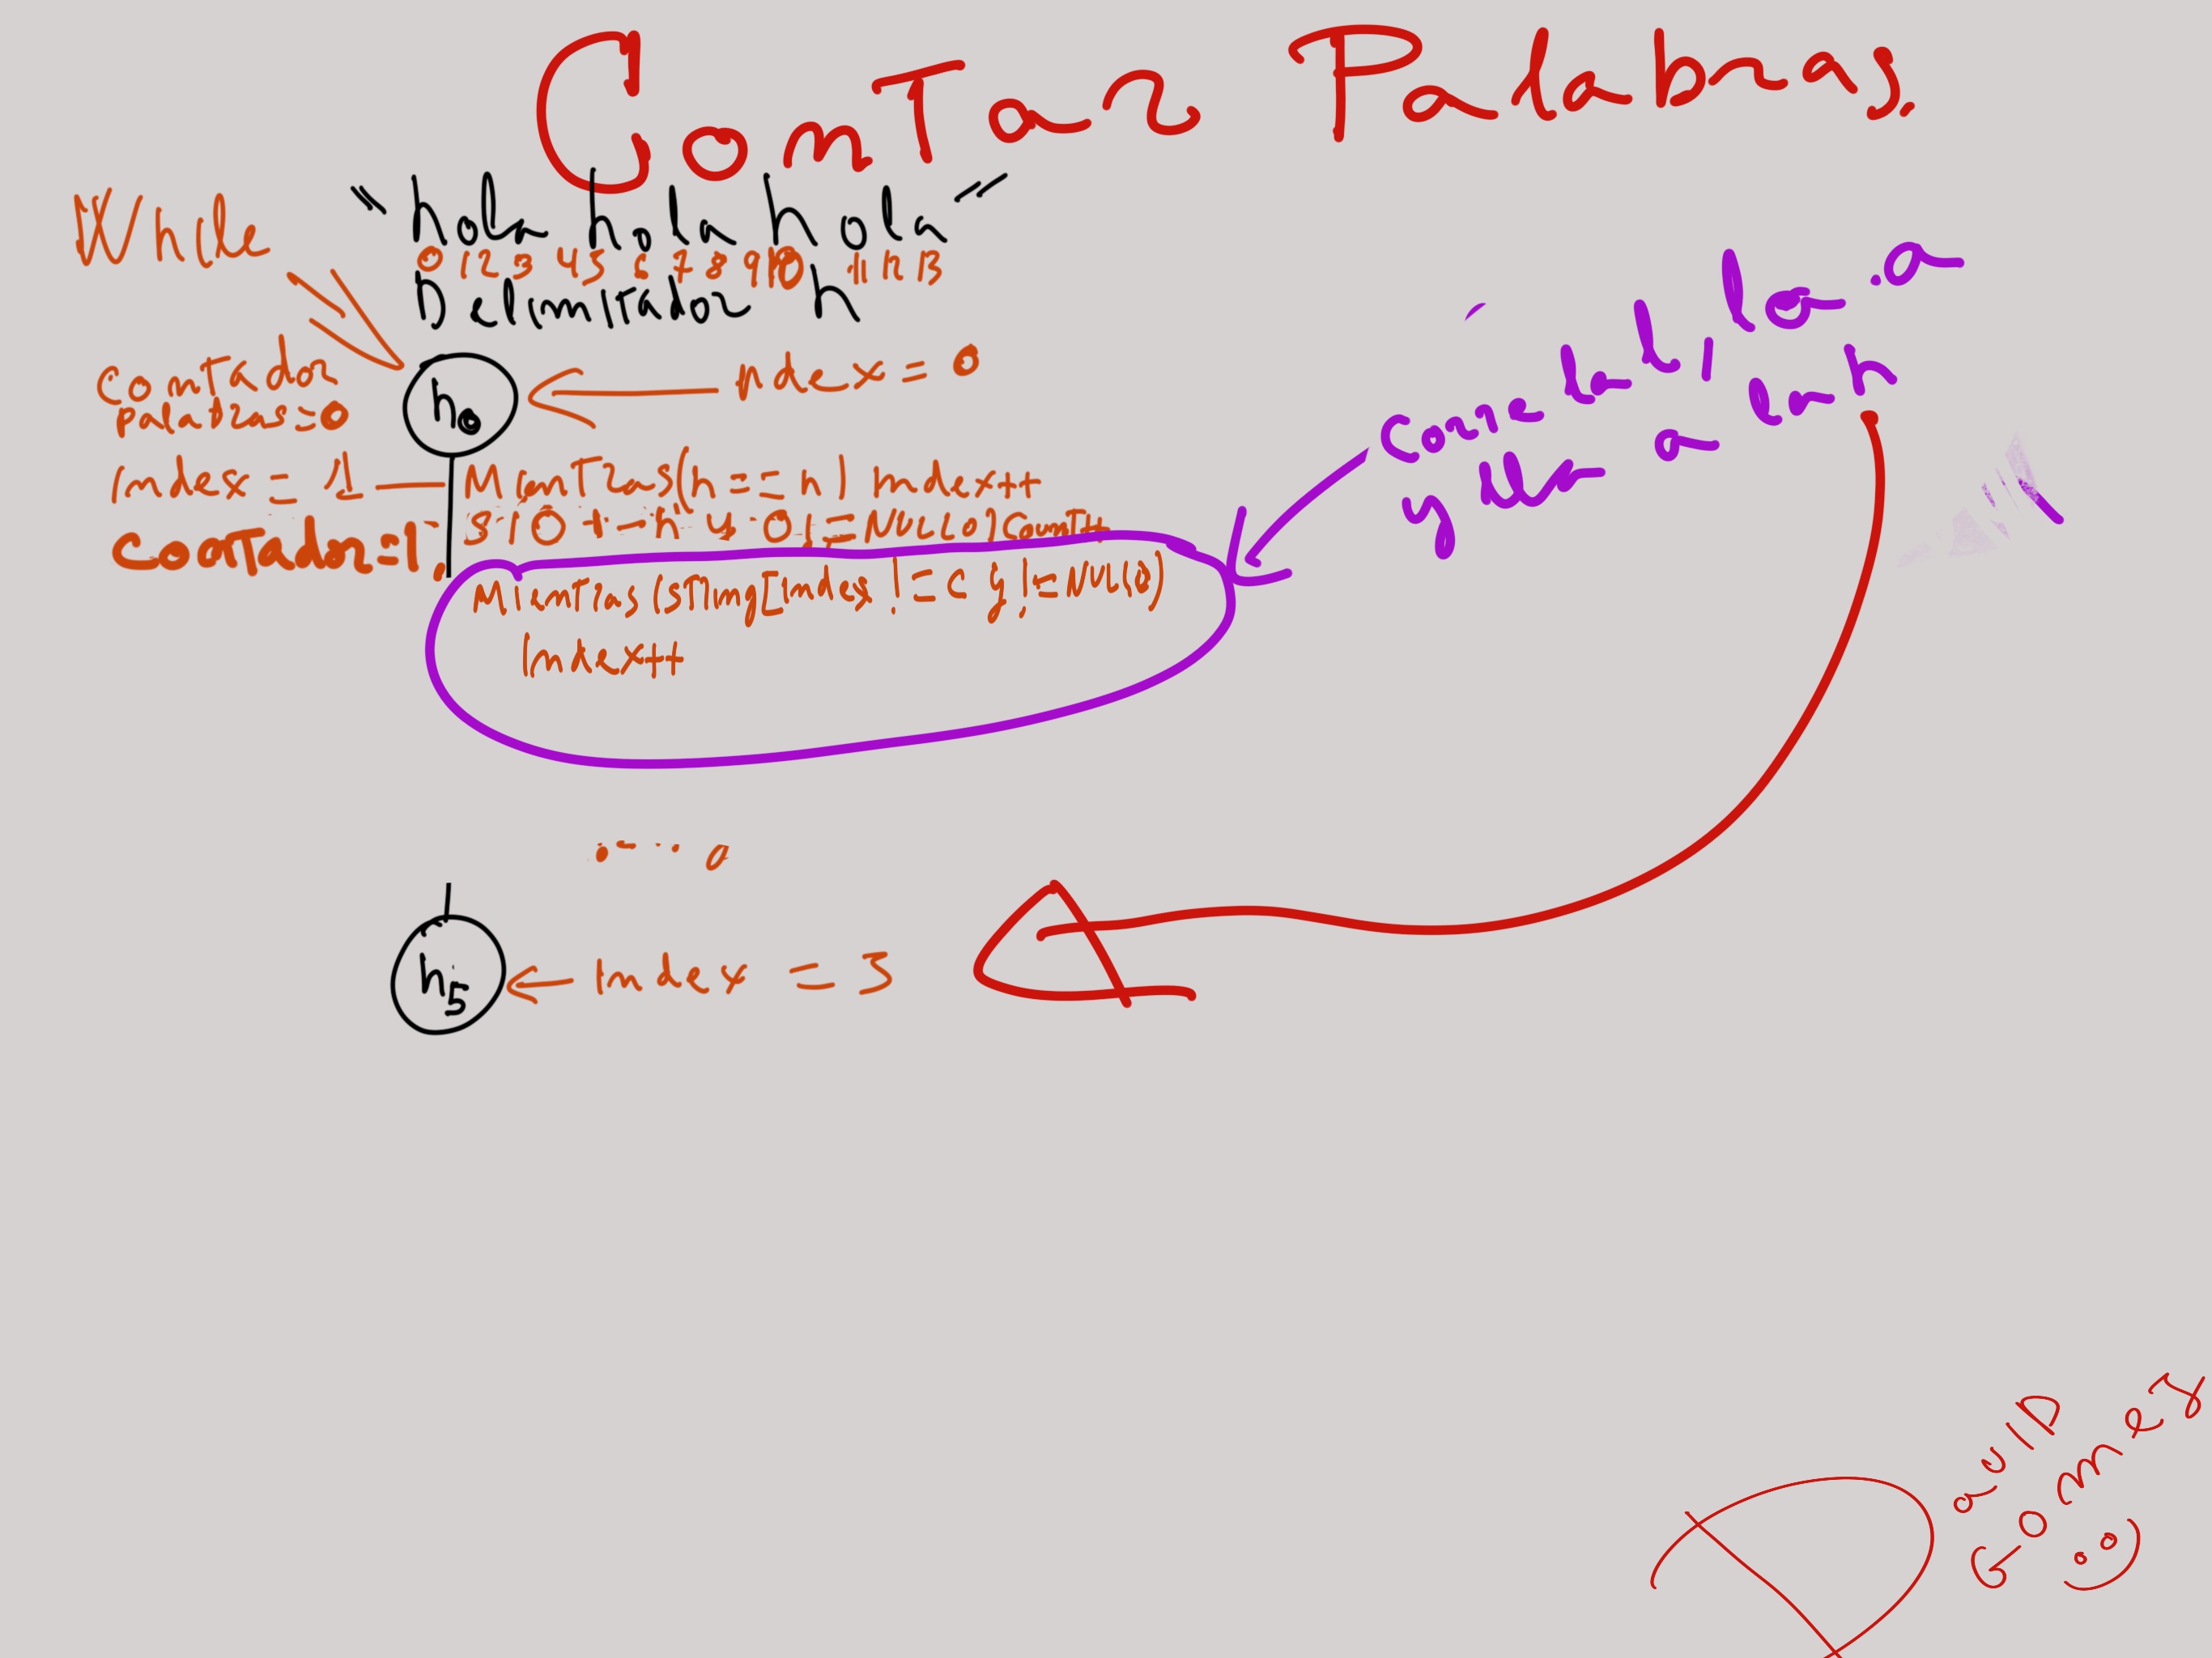 Contar Palabras.
While "hola hola hola"
0 1 2 3 4 5 6 7 8 9 10 11 12 13
Delimitador h
contador
palabras=0
h0
Index = 0
Index = 1
Mientras(h==h) index++
y != NULLO) Count++
Contador=1;
Mientras (string[index != c y != NULLO)
Index++
la l, la o
y lleva a la h
h5
Index =
David
Gomez